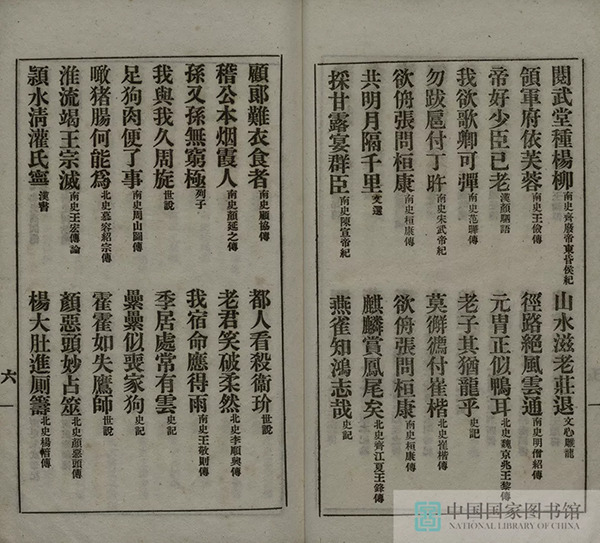 閱武堂種楊柳 南史齊廢帝東昏侯紀 山水滋老莊退 文心雕龍
領軍府依芙蓉 南史王儉傳 徑路絕風雲通 南史明僧紹傳
帝好少臣已老 漢顏駟語 元冑正似鴨耳 北史魏京兆王黎傳
我欲歌卿可彈 南史范曄傳 老子其猶龍乎 史記
勿跋扈付丁旿 南史宋武帝紀 莫獬獦付崔楷 北史崔楷傳
欲侜張問桓康 南史桓康傳 欲侜張問桓康 南史桓康傳
共明月隔千里 文選 麒麟賞鳳尾矣 南史齊江夏王鋒傳
採甘露宴羣臣 南史陳宣帝紀 燕雀知鴻志哉 史記
顧郎難衣食者 南史顧協傳 都人看殺衞玠 世說
稽公本烟霞人 南史顏延之傳 老君笑破柔然 北史李順興傳
孫又孫無窮極 列子 我宿命應得雨 南史王敬則傳
我與我久周旋 世說 季居處常有雲 史記
足狗肉便了事 南史周山圖傳 纍纍似喪家狗 史記
噉猪腸何能爲 北史慕容紹宗傳 霍霍如失鷹師 世說
淮流竭王宗滅 南史王宏傳論 顏惡頭妙占筮 北史顏惡頭傳
潁水清灌氏寧 漢書 楊大肚進厠籌 北史楊愔傳
六
中国国家图书馆
NATIONAL LIBRARY OF CHINA